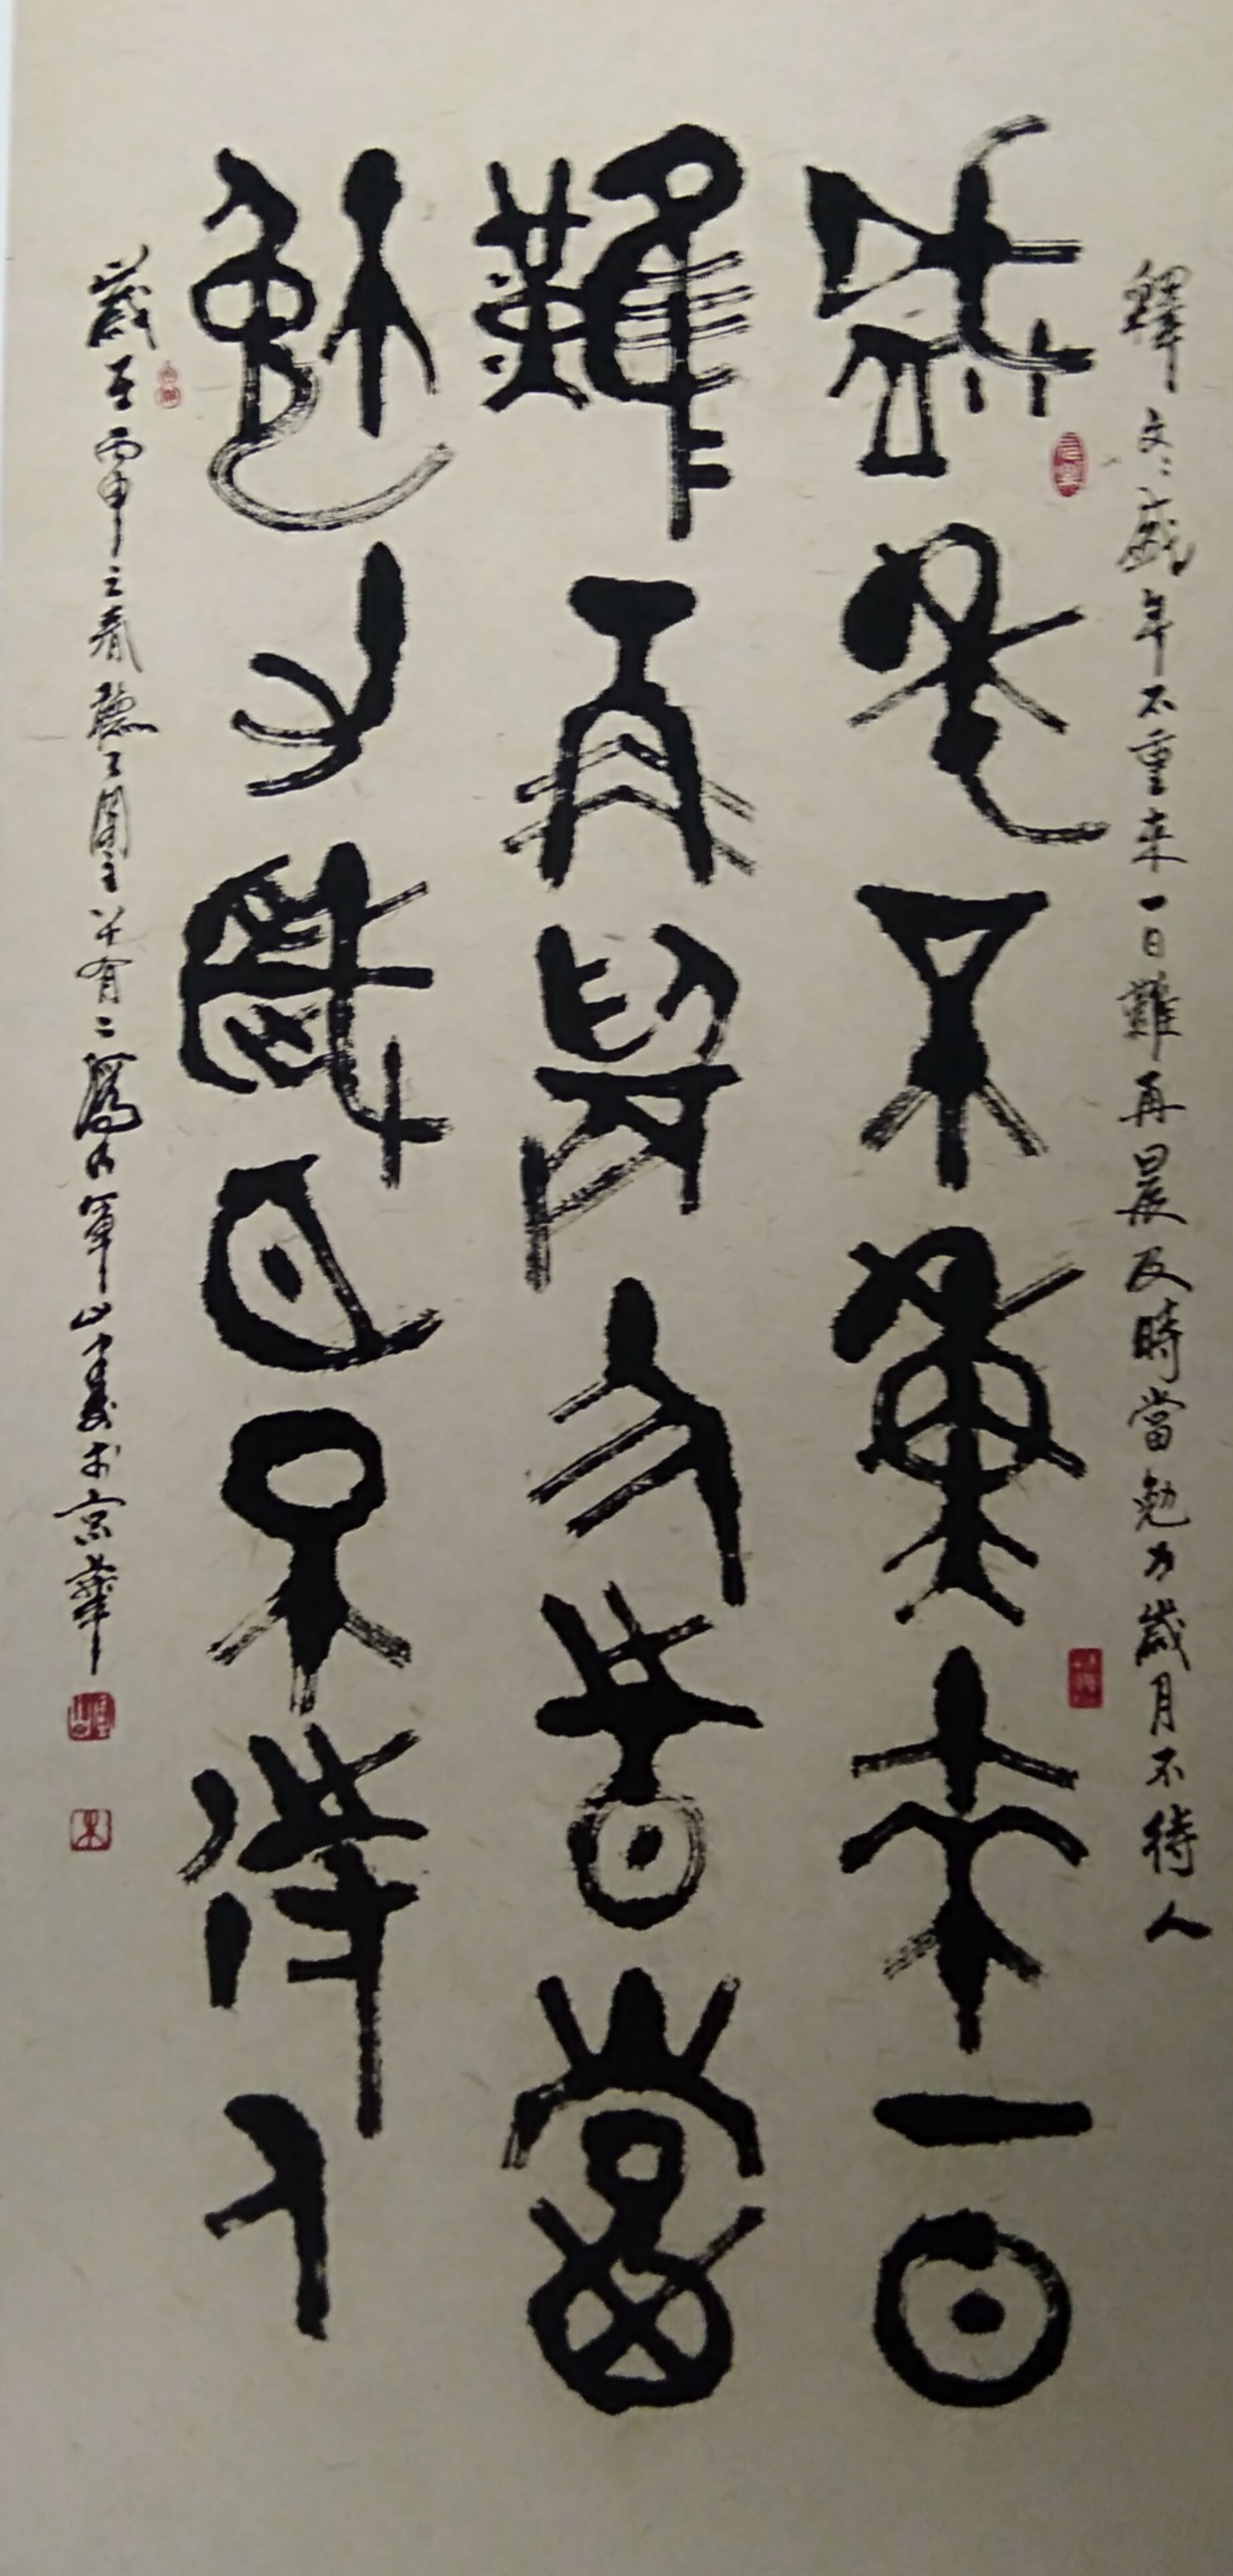 釋文：歲年不重來一日難再晨及時當勉力歲月不待人
歲年不重來一日
難再晨及時當
勉力歲月不待人
歲至丙申之春 有二 軍山 於京華